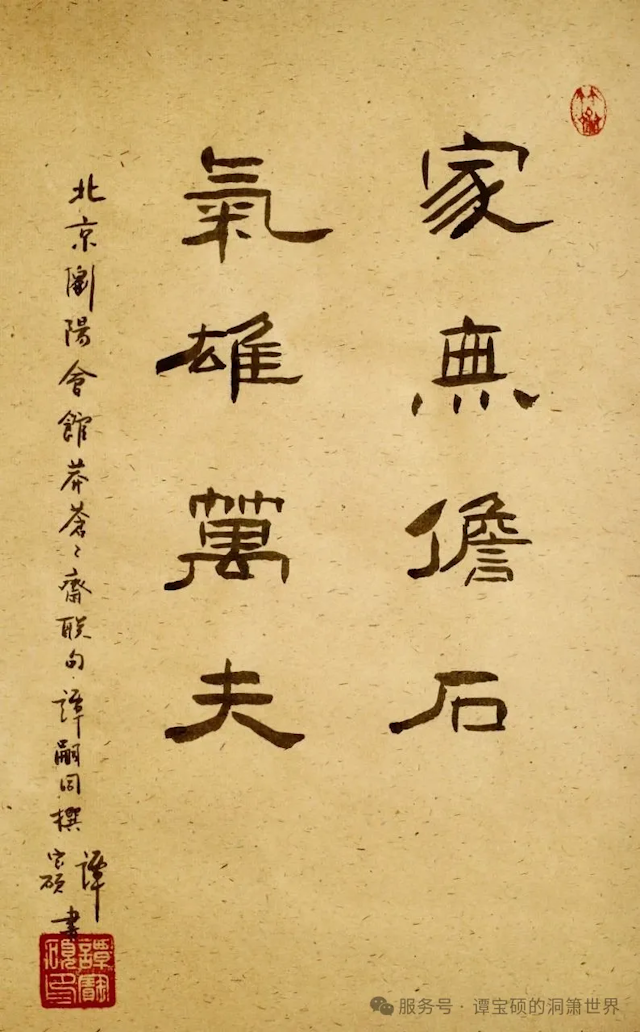 家無儋石
氣雄萬夫
北京瀏陽會館莽蒼〻齋联句譚嗣同撰
譚宝硕書
譚寶碩印
服务号 · 谭宝硕的洞箫世界